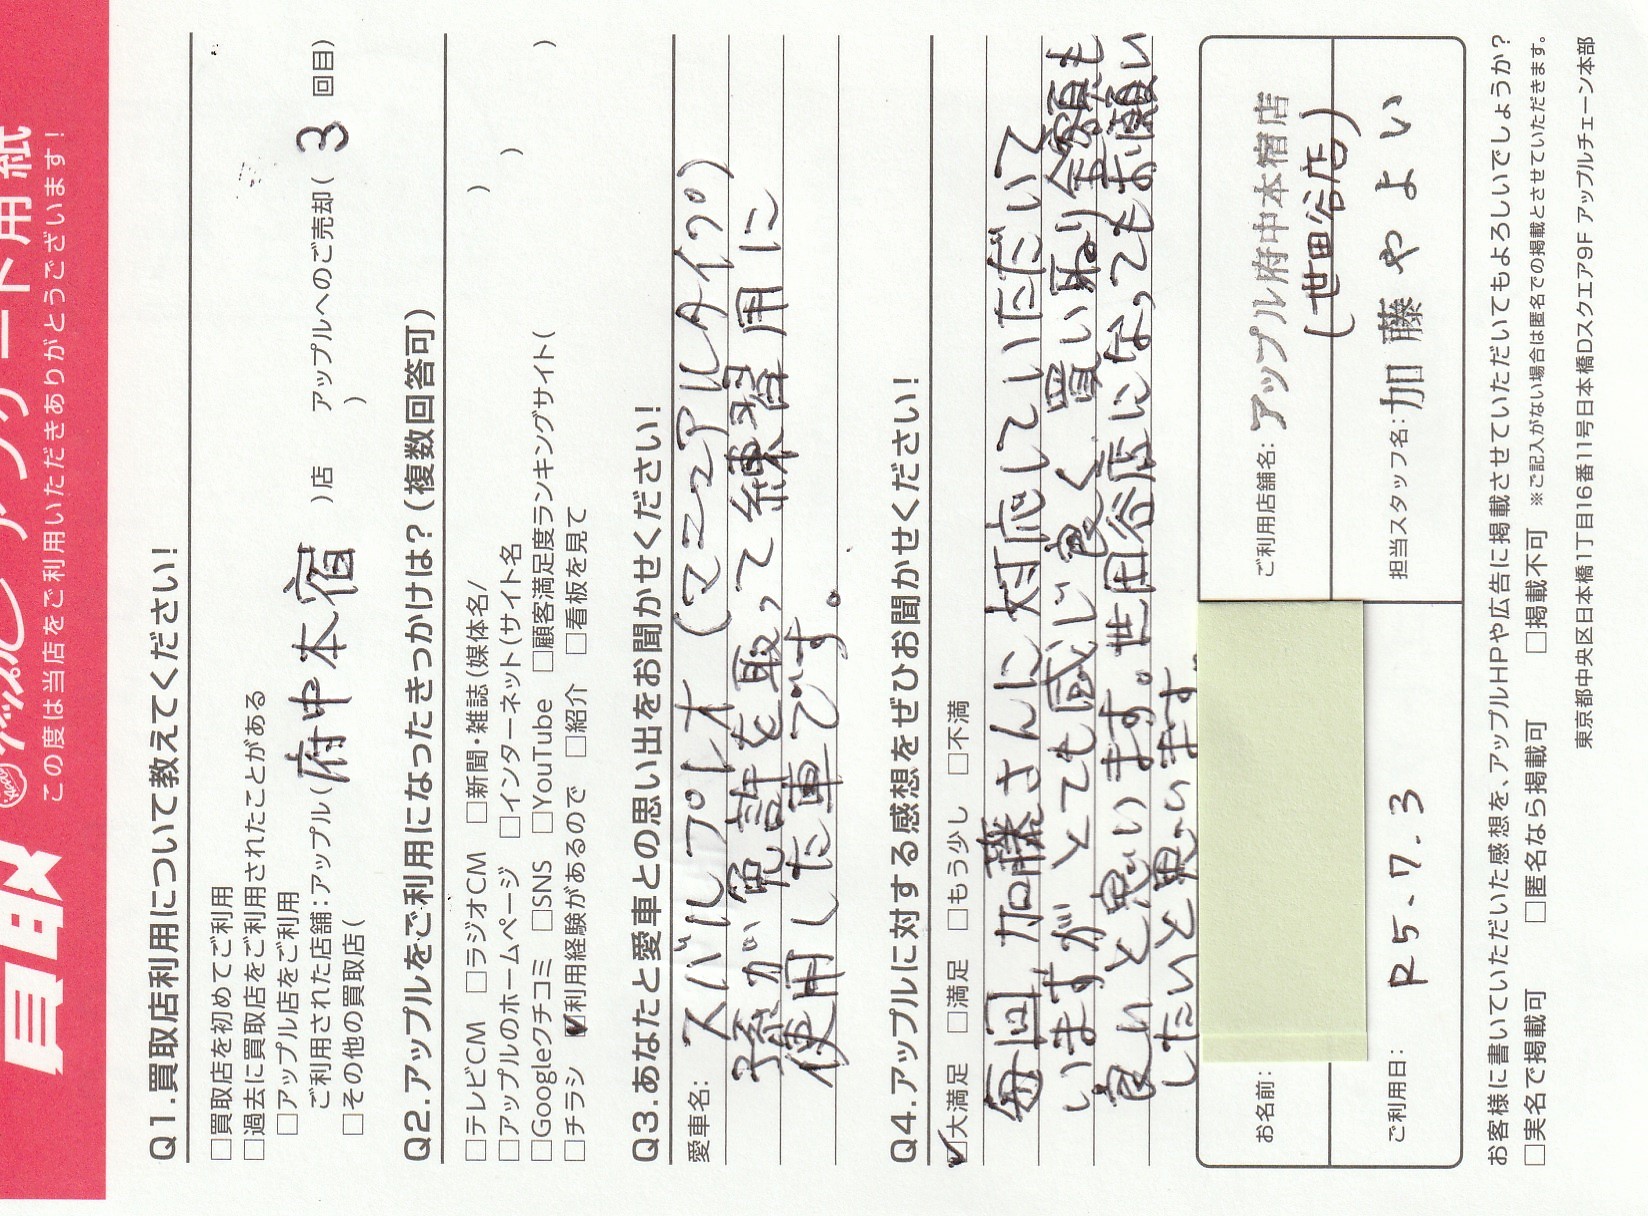 買取 アップル アンケート用紙
この度は当店をご利用いただきありがとうございます!
Q1.買取店利用について教えてください!
□買取店を初めてご利用
□過去に買取店をご利用されたことがある
□アップル店をご利用
ご利用された店舗:アップル(府中本宿 )店 アップルへのご売却( 3 回目)
□その他の買取店( )
Q2.アップルをご利用になったきっかけは?(複数回答可)
□テレビCM □ラジオCM □新聞・雑誌(媒体名/ )
□アップルのホームページ □インターネット(サイト名 )
□Googleクチコミ □SNS □YouTube □顧客満足度ランキングサイト( )
□チラシ ☑利用経験があるので □紹介 □看板を見て
Q3.あなたと愛車との思い出をお聞かせください!
愛車名: スバルプレオ (マニュアルタイプ)
孫が免許を取って練習用に
使用した車です。
Q4.アップルに対する感想をぜひお聞かせください!
☑大満足 □満足 □もう少し □不満
毎回 加藤さんに対応していただいて
いますが とても感じ良く 買い取り金額も
良いと思います。世田谷店になってもお願い
したいと思います
お名前:
ご利用店舗名: アップル府中本宿店
(世田谷店)
ご利用日: R5.7.3
担当スタッフ名: 加藤やよい
お客様に書いていただいた感想を、アップルHPや広告に掲載させていただいてもよろしいでしょうか?
□実名で掲載可 □匿名なら掲載可 □掲載不可 ※ご記入がない場合は匿名での掲載とさせていただきます。
東京都中央区日本橋1丁目16番11号日本橋Dスクエア9F アップルチェーン本部